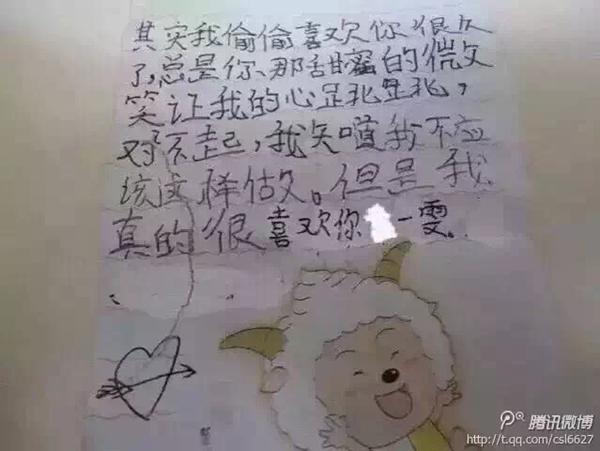 其实我偷偷喜欢你很久
了,总是你、那甜蜜的微
笑让我的心
对不起,我知道我不应
该这样做。但是我
真的很喜欢你 一雯。
腾讯微博
http://t.qq.com/csl6627